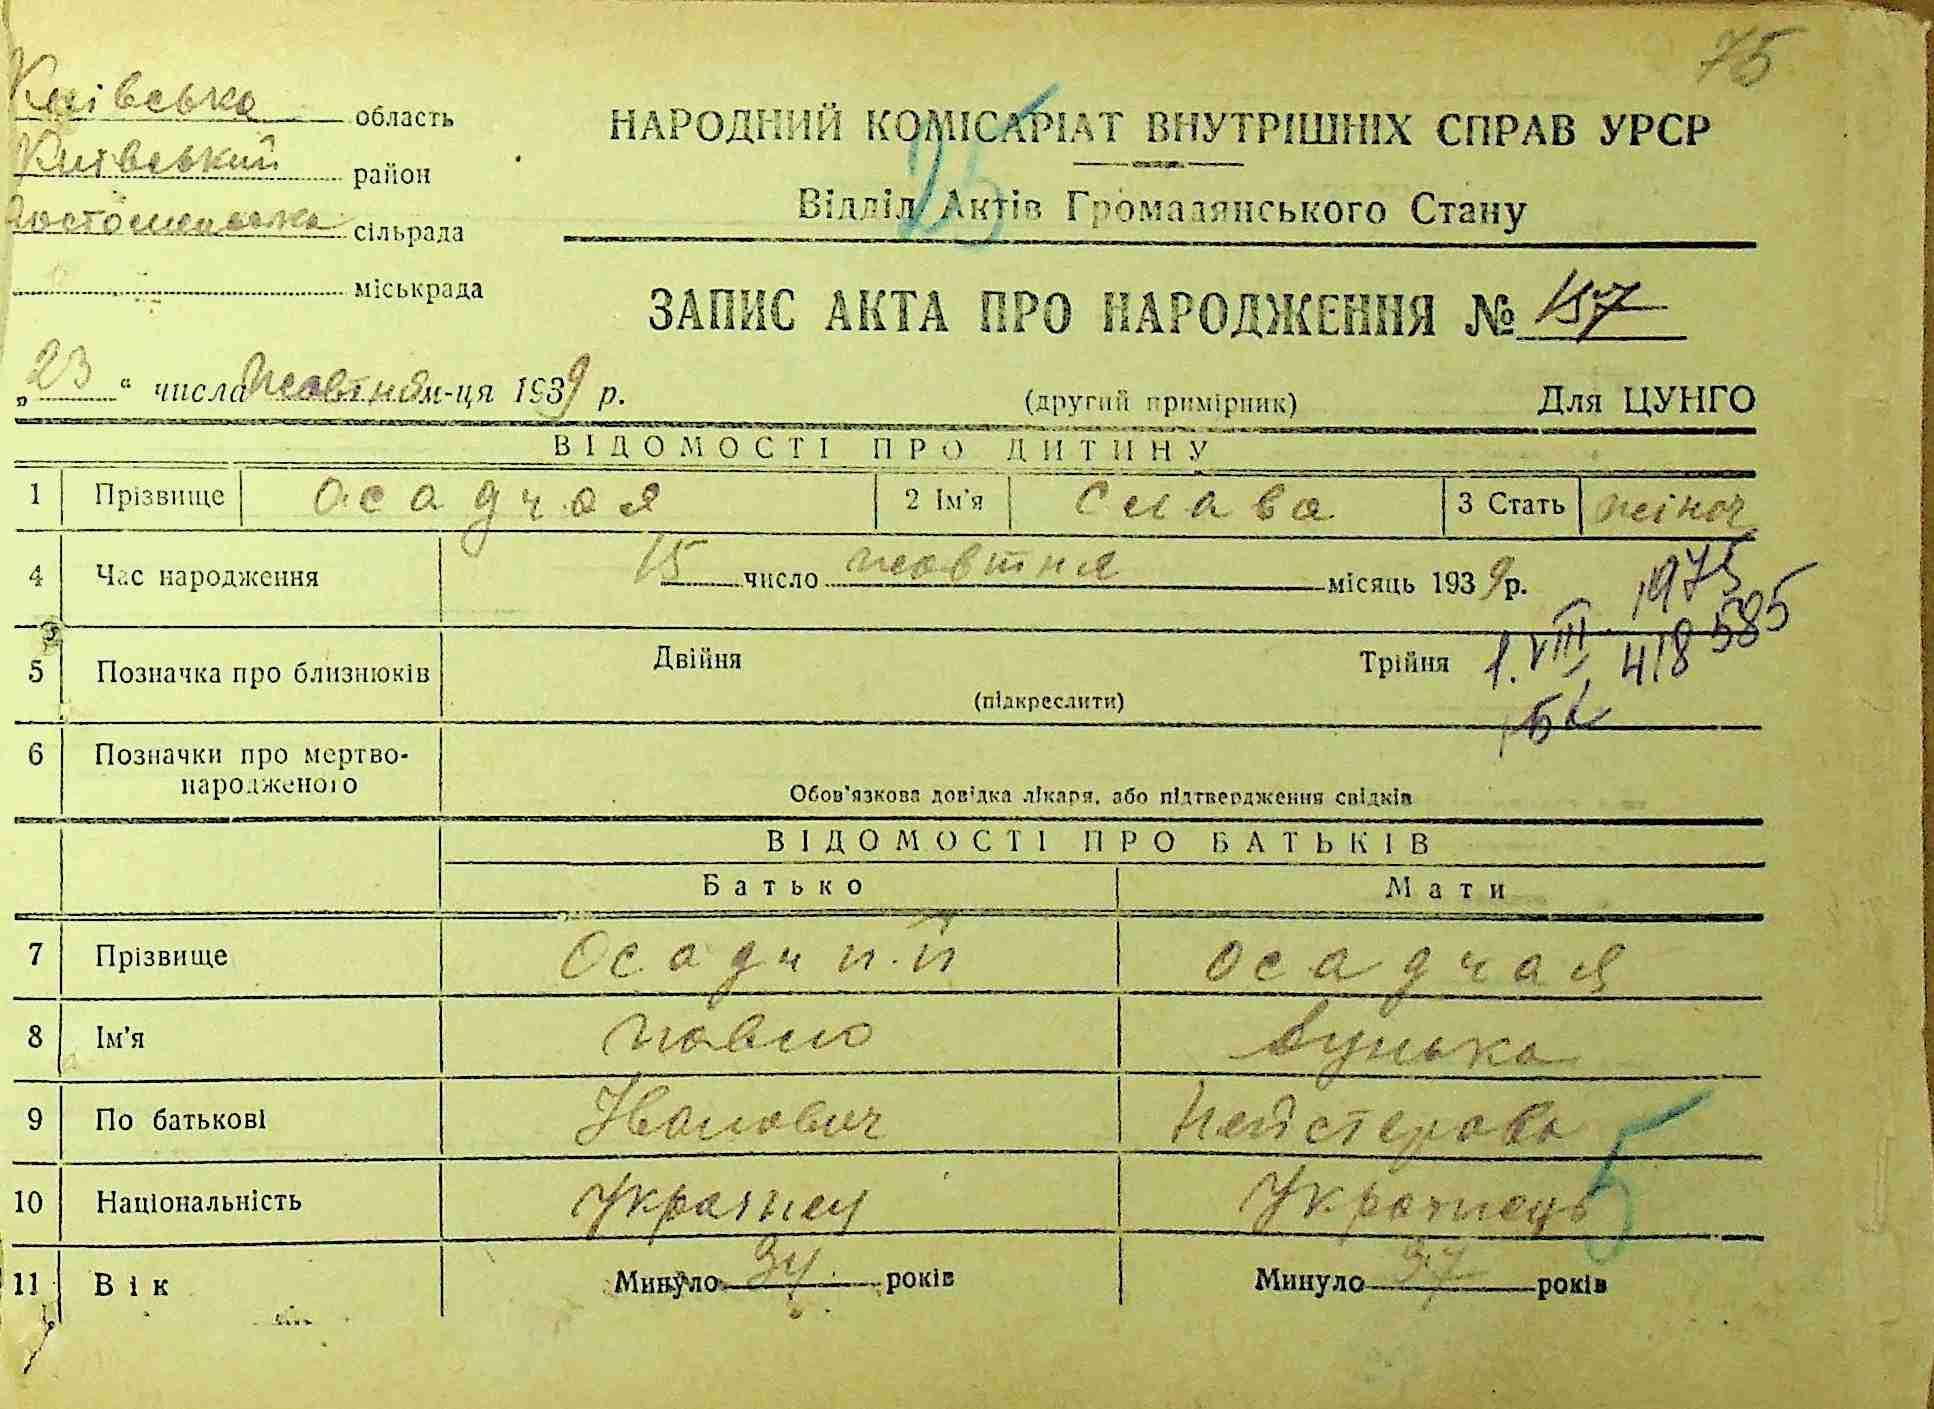 75
Київська область
Київський район
Гостомельська сільрада
міськрада
НАРОДНИЙ КОМІСАРІАТ ВНУТРІШНІХ СПРАВ УРСР
25
Відділ Актів Громадянського Стану
ЗАПИС АКТА ПРО НАРОДЖЕННЯ № 157
„23“ числа Жовтня м-ця 1939 р.
(другий примірник) Для ЦУНГО
ВІДОМОСТІ ПРО ДИТИНУ
1 Прізвище Осадчая 2 Ім'я Слава 3 Стать жіноч
4 Час народження 15 число жовтня місяць 1939 р.
1975
5 Позначка про близнюків Двійня Трійня
(підкреслити)
1. VIII 418585
6 Позначки про мертво-
народженого
Обов'язкова довідка лікаря, або підтвердження свідків
ВІДОМОСТІ ПРО БАТЬКІВ
Батько Мати
7 Прізвище Осадчий Осадчая
8 Ім'я Павло
9 По батькові Іванович
10 Національність Украінец Украінець
5
11 Вік Минуло 34 років Минуло 37 років